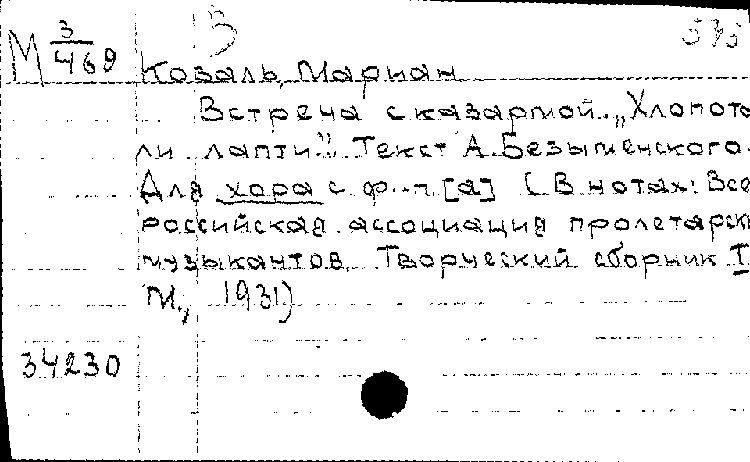 М 3/469
В
535
Коваль, Мариан
Встреча с казармой. „Хлопота
ли лапти". Текст А. Безыменского.
Для хора с ф.-п [а] [В нотах: Все
российская ассоциация пролетарск
музыкантов. Творческий сборник I
М., 1931)
34230